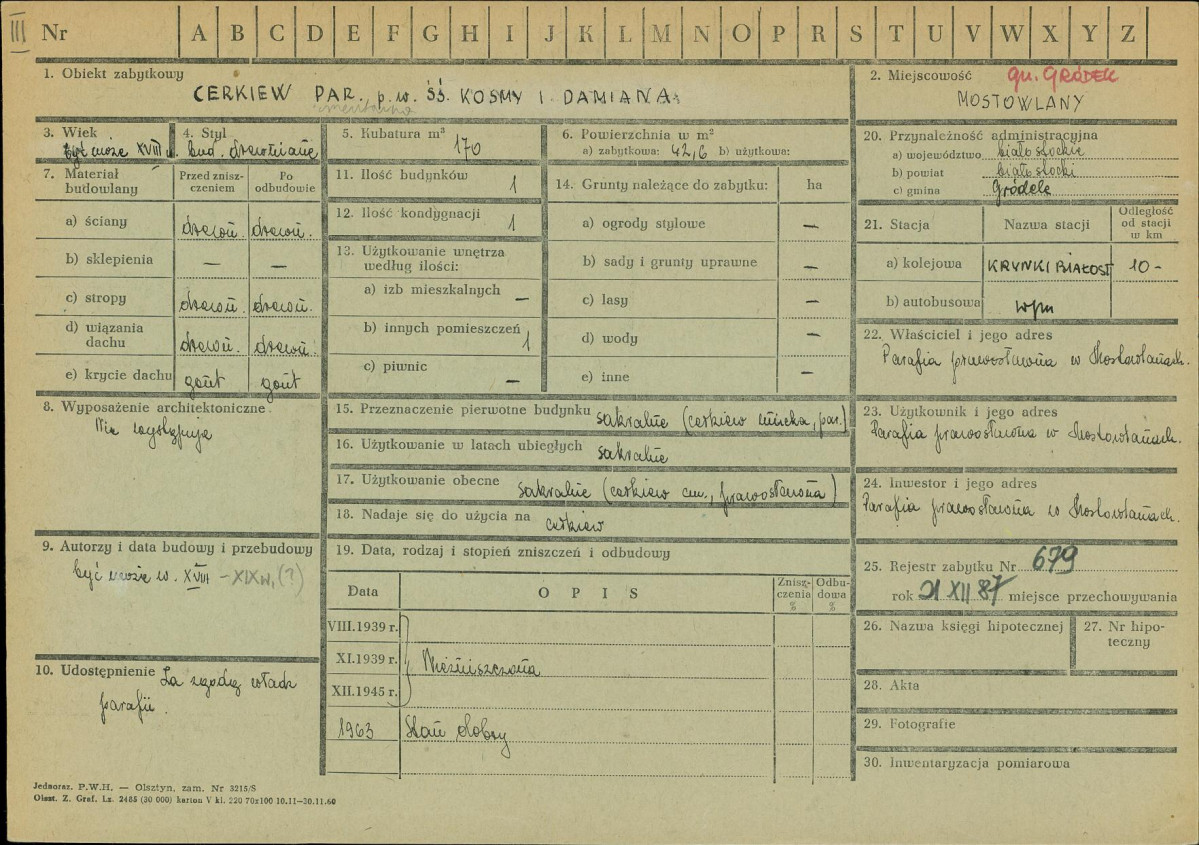 III Nr A B C D E F G H I J K L M N O P R S T U V W X Y Z
1. Obiekt zabytkowy
CERKIEW PAR. p.w. ŚŚ. KOSMY I DAMIANA
cmentarna
2. Miejscowość gm. GRÓDEK
MOSTOWLANY
3. Wiek
być może XVIII w.
4. Styl
bud. drewniane
5. Kubatura m³
170
6. Powierzchnia w m²
a) zabytkowa: 42,6 b) użytkowa:
7. Materiał budowlany
Przed zniszczeniem
Po odbudowie
a) ściany drewn. drewn.
b) sklepienia — —
c) stropy drewn. drewn.
d) wiązania dachu drewn. drewn.
e) krycie dachu gont gont
8. Wyposażenie architektoniczne
Nie występuje
9. Autorzy i data budowy i przebudowy
być może w. XVIII – XIX w. (?)
10. Udostępnienie Za zgodą władz
parafii.
11. Ilość budynków 1
12. Ilość kondygnacji 1
13. Użytkowanie wnętrza
według ilości:
a) izb mieszkalnych —
b) innych pomieszczeń 1
c) piwnic —
14. Grunty należące do zabytku: ha
a) ogrody stylowe —
b) sady i grunty uprawne —
c) lasy —
d) wody —
e) inne —
15. Przeznaczenie pierwotne budynku sakralne (cerkiew unicka, par.)
16. Użytkowanie w latach ubiegłych sakralne
17. Użytkowanie obecne sakralne (cerkiew cm., prawosławna)
18. Nadaje się do użycia na cerkiew
19. Data, rodzaj i stopień zniszczeń i odbudowy
Data
OPIS
Zniszczenia %
Odbudowa %
VIII.1939 r.
XI.1939 r. Niezniszczona
XII.1945 r.
1963 Stan dobry
20. Przynależność administracyjna
a) województwo białostockie
b) powiat białostocki
c) gmina Gródek
21. Stacja
Nazwa stacji
Odległość od stacji w km
a) kolejowa KRYNKI BIAŁOST 10 -
b) autobusowa wjm
22. Właściciel i jego adres
Parafia prawosławna w Mostowlanach.
23. Użytkownik i jego adres
Parafia prawosławna w Mostowlanach.
24. Inwestor i jego adres
Parafia prawosławna w Mostowlanach.
25. Rejestr zabytku Nr 679
rok 21 XII 87 miejsce przechowywania
26. Nazwa księgi hipotecznej
27. Nr hipoteczny
28. Akta
29. Fotografie
30. Inwentaryzacja pomiarowa
Jednoraz. P.W.H. — Olsztyn, zam. Nr 3215/S
Olszt. Z. Graf. Lz. 2485 (30 000) karton V kl. 220 70x100 10.11—30.11.60